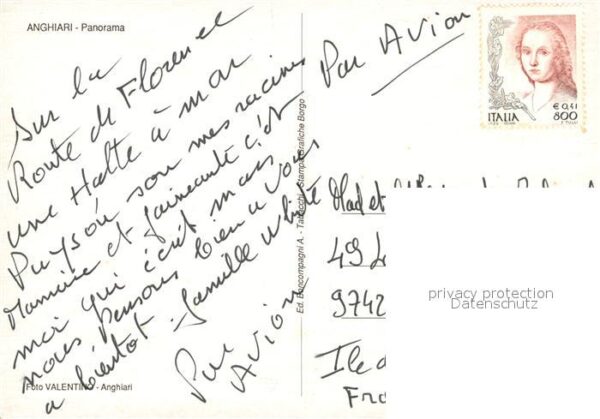 ANGHIARI - Panorama
Sur la
Route de Florence
une Halte à mon
Pays où son mes racines
Mamine et faineante c'est
moi qui écrit mais
nous pensons bien a vous
a bientot. famille White
Par
Avion
Foto VALENTINO - Anghiari
Ed. Boncompagni A. - Stampa Grafiche Borgo
Par Avion
€ 0,41
ITALIA 800
49
9742
Ile d
Fra
privacy protection
Datenschutz